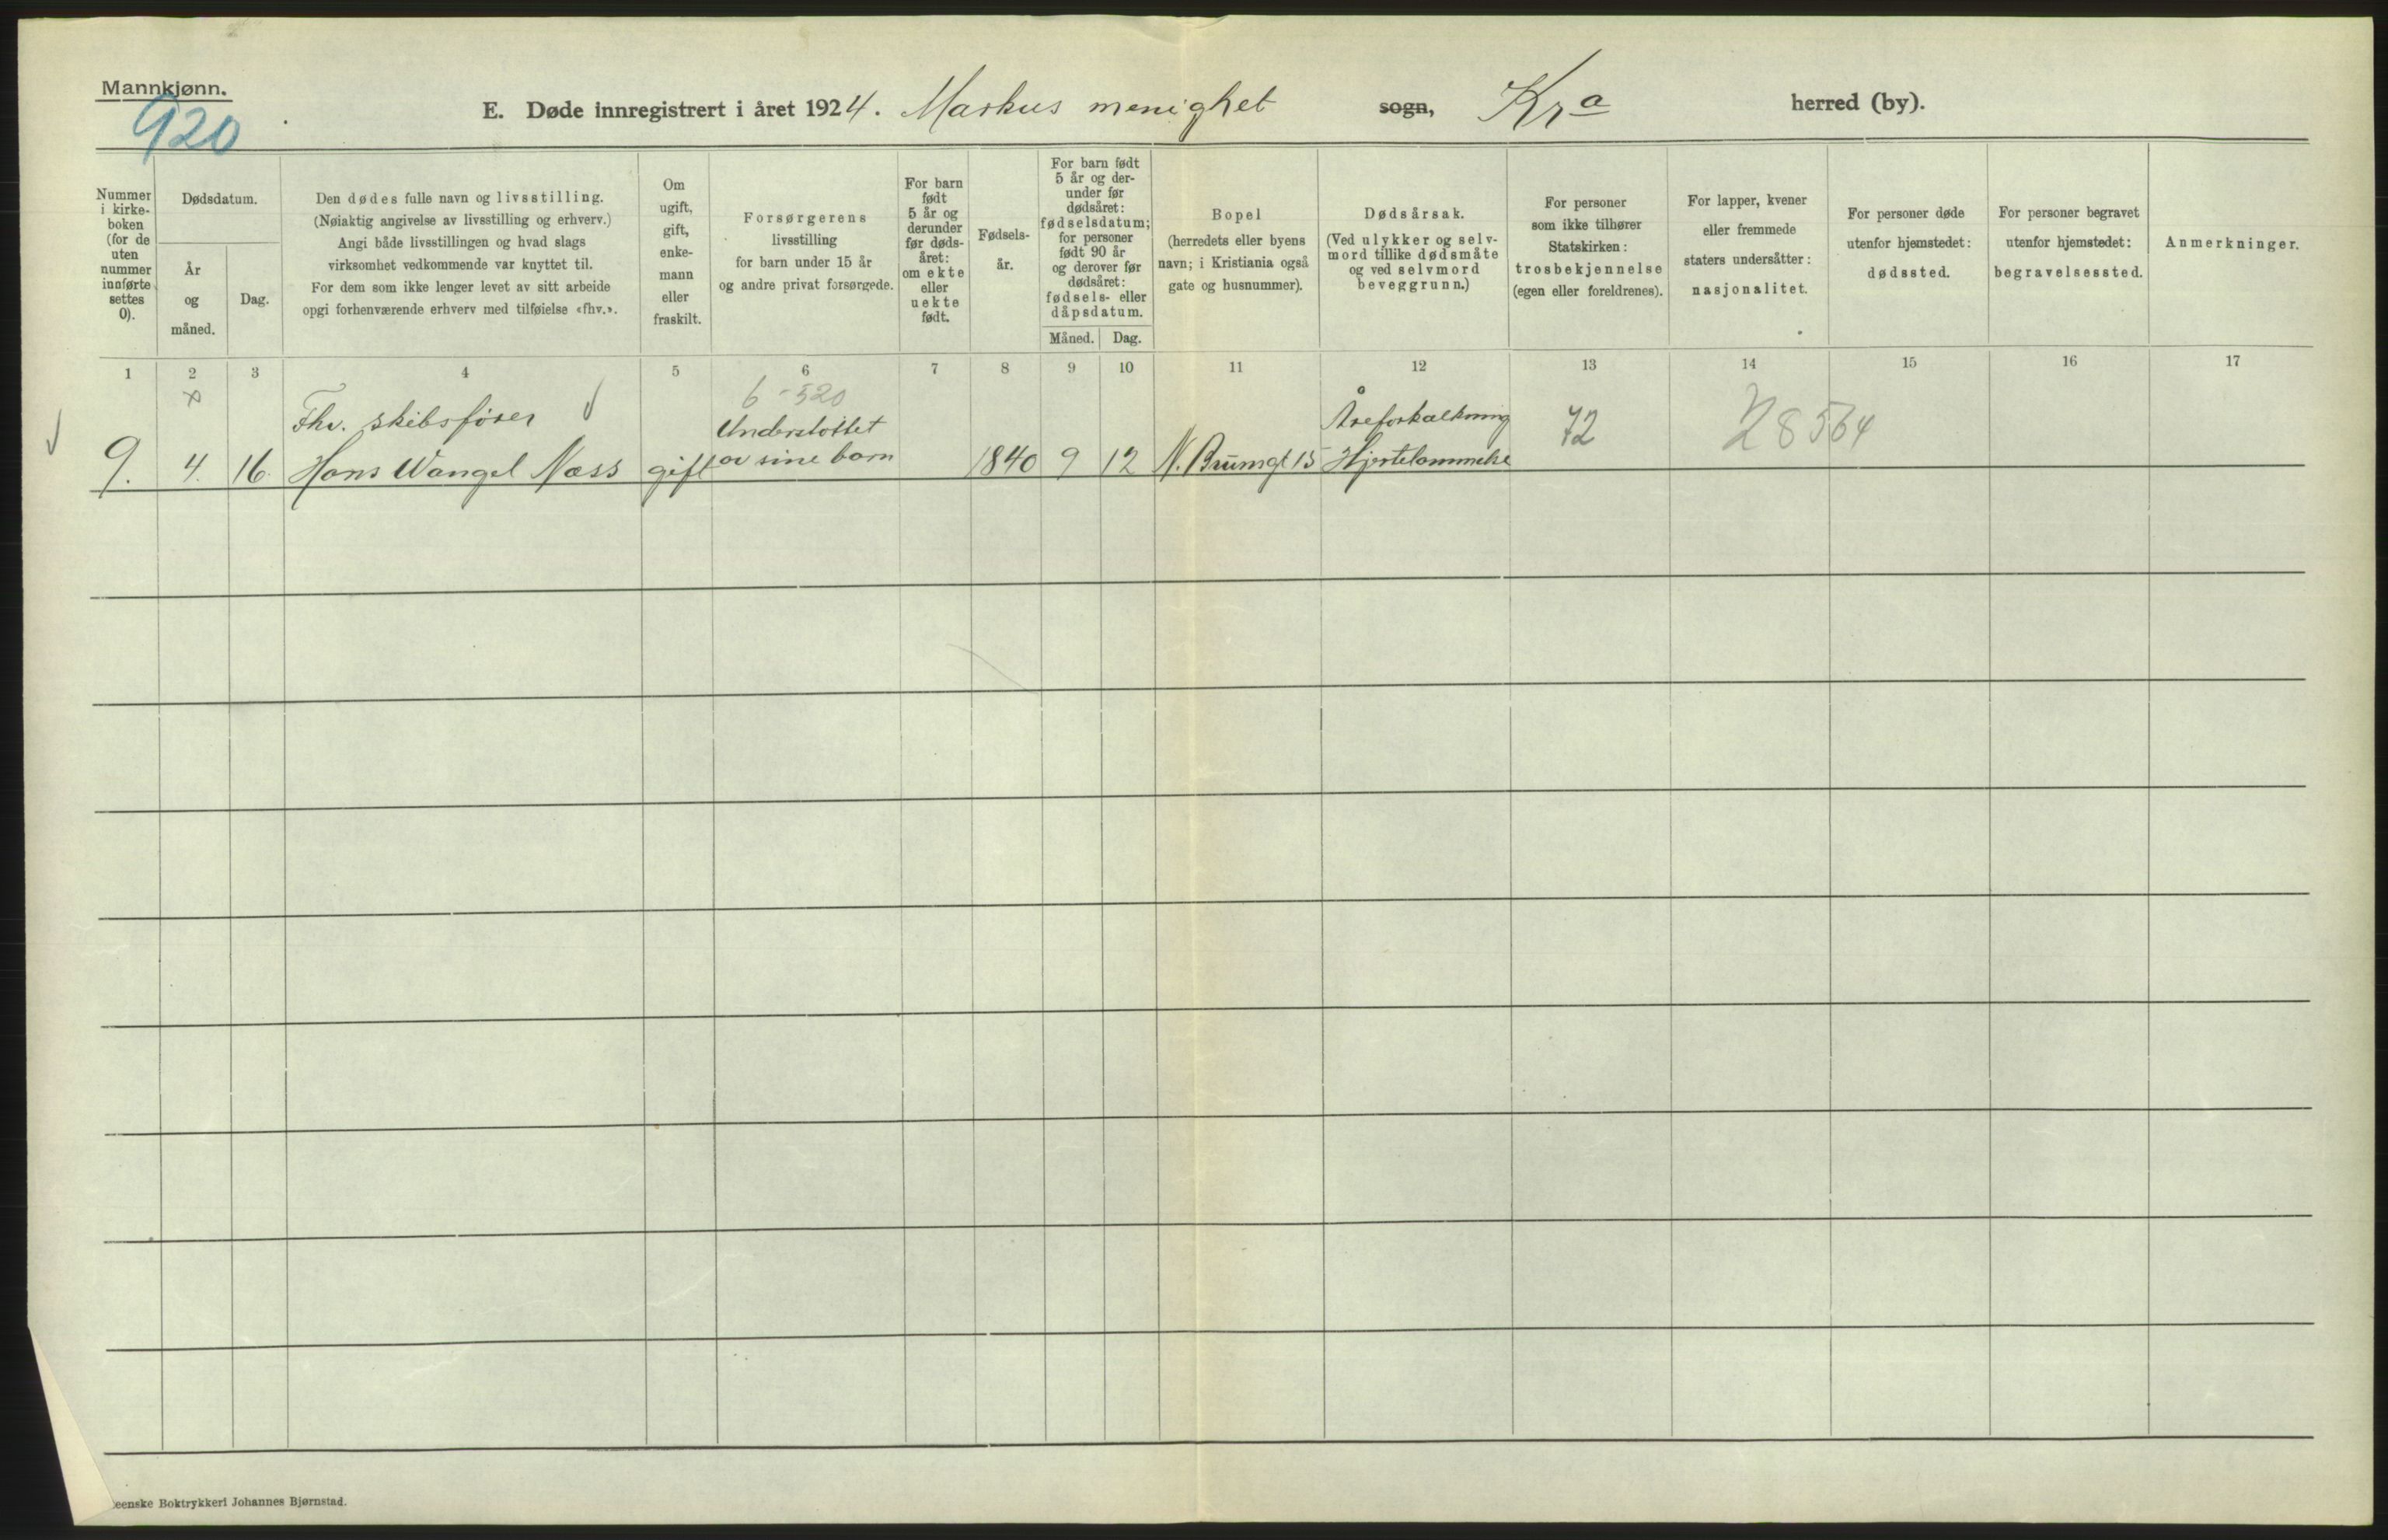 Mannkjønn.
920
E. Døde innregistrert i året 1924. Markus menighet sogn, Kra herred (by).
Nummer
i kirke-
boken
(for de
uten
nummer
innførte
settes
0).
Dødsdatum.
År
og
måned.
Dag.
Den dødes fulle navn og livsstilling.
(Nøiaktig angivelse av livsstilling og erhverv.)
Angi både livsstillingen og hvad slags
virksomhet vedkommende var knyttet til.
For dem som ikke lenger levet av sitt arbeide
opgi forhenværende erhverv med tilføielse «fhv.».
Om
ugift,
gift,
enke-
mann
eller
fraskilt.
Forsørgerens
livsstilling
for barn under 15 år
og andre privat forsørgede.
For barn
født
5 år og
derunder
før døds-
året:
om ekte
eller
uekte
født.
Fødsels-
år.
For barn født
5 år og der-
under før
dødsåret:
fødselsdatum;
for personer
født 90 år
og derover før
dødsåret:
fødsels- eller
dåpsdatum.
Måned. Dag.
Bopel
(herredets eller byens
navn; i Kristiania også
gate og husnummer).
Dødsårsak.
(Ved ulykker og selv-
mord tillike dødsmåte
og ved selvmord
beveggrunn.)
For personer
som ikke tilhører
Statskirken:
trosbekjennelse
(egen eller foreldrenes).
For lapper, kvener
eller fremmede
staters undersåtter:
nasjonalitet.
For personer døde
utenfor hjemstedet:
dødssted.
For personer begravet
utenfor hjemstedet:
begravelsessted.
Anmerkninger.
1 2 3 4 5 6 7 8 9 10 11 12 13 14 15 16 17
6-520
Fhv. skibsfører Understøttet Åreforkalkning 72 28564
9. 4. 16. Hans Wangel Næss gift av sine barn 1840 9 12 N. Brumgt 15 Hjertelammelse
eenske Boktrykkeri Johannes Bjørnstad.